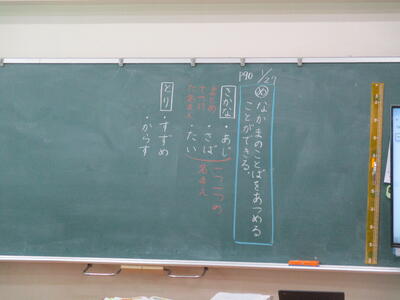 P90 1/27
め なかまのことばをあつめる
ことができる。
さかな ・あじ
・さば
・たい
一つ一つの
名まえ
まとめ
てつけ
た名まえ
とり ・すずめ
・からす